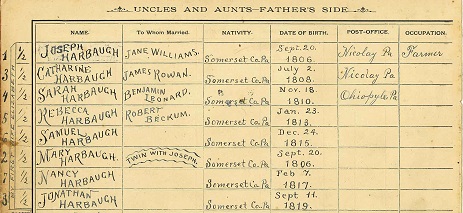 UNCLES AND AUNTS—FATHER'S SIDE.
NAME. To Whom Married. NATIVITY. DATE OF BIRTH. POST-OFFICE. OCCUPATION.
1 1/2 JOSEPH HARBAUGH JANE WILLIAMS. Somerset Co. Pa Sept. 20. 1806. Nicolay Pa Farmer
3 1/2 CATHARINE HARBAUGH JAMES ROWAN. Somerset Co. Pa July 2. 1808. Nicolay Pa
4 1/2 SARAH HARBAUGH BENJAMIN LEONARD. Somerset Co. Pa Nov. 18. 1810. Ohiopyle Pa
5 1/2 REBECCA HARBAUGH ROBERT BECKUM. Somerset Co. Pa Jan. 23. 1813.
1/2 SAMUEL HARBAUGH Somerset Co. Pa Dec. 24. 1815.
2 1/2 MARY HARBAUGH. TWIN WITH JOSEPH. Somerset Co. Pa Sept. 20. 1806.
1/2 NANCY HARBAUGH Somerset Co. Pa Feb 7. 1817.
1/2 JONATHAN HARBAUGH Somerset Co. Pa Sept 11. 1819.